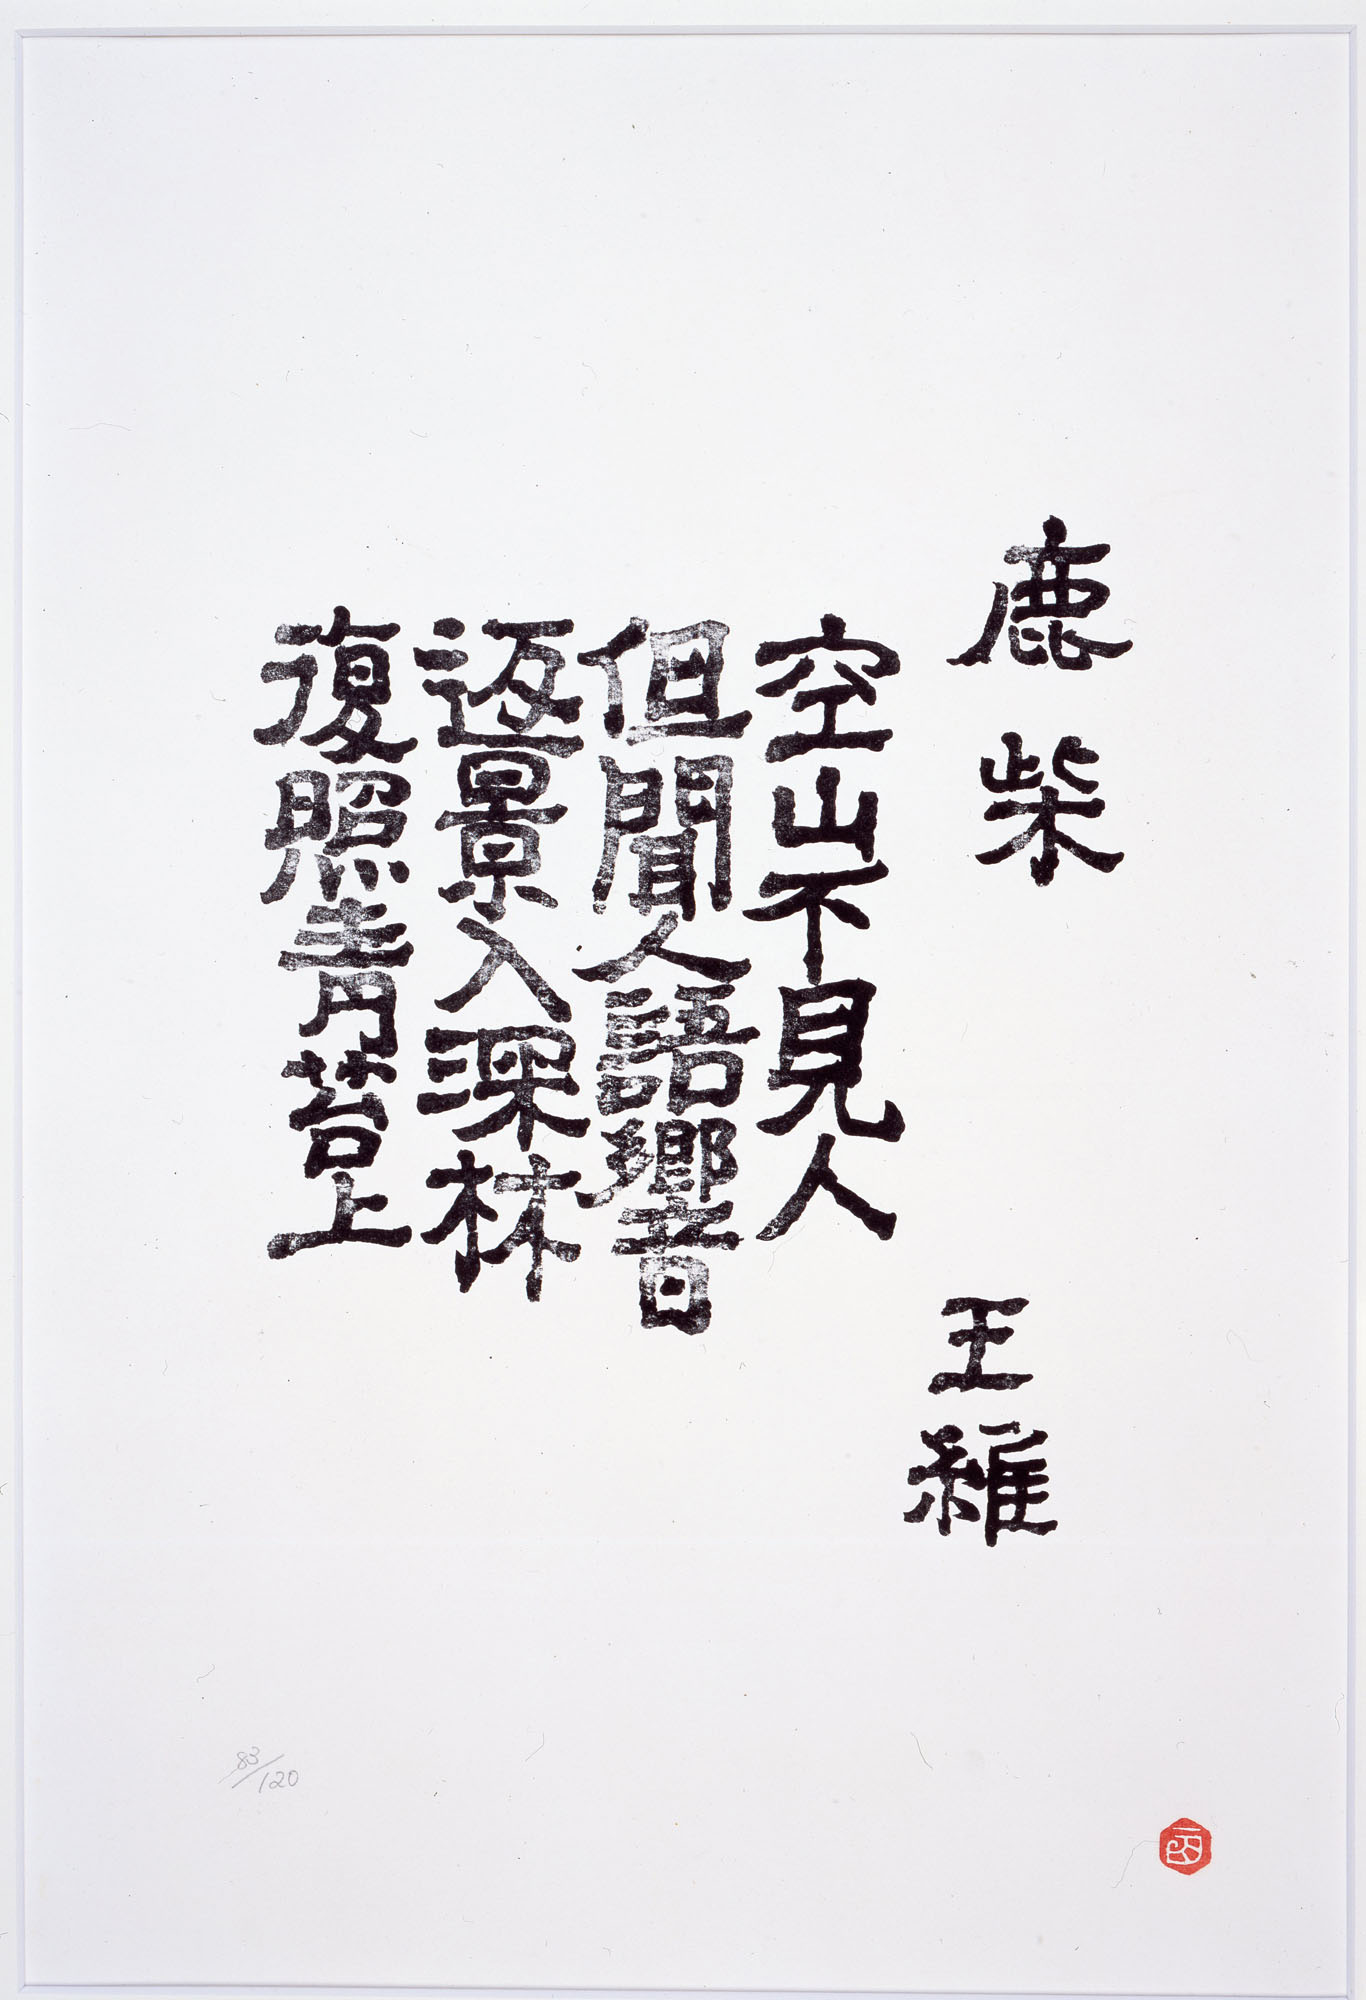 鹿柴
王維
空山不見人
但聞人語響
返景入深林
復照青苔上
83/120